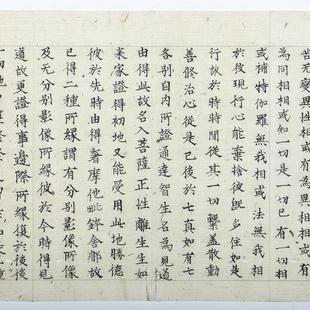 苦无變異相或有異性相或有
為同相相或知一切是一已有一切相
或補特伽羅無我相或法無我相
於彼現行心能棄捨彼既多住如是
行故於時時間從其一切繫蓋散動
善修治心從是已後於七真如有七
各別自內所證通達智生名為見道
由得此故名入菩薩正性離生生如
来家證得初地又能受用此地勝德
彼於先時由得奢摩他毗鉢舍那故
已得二種所緣謂有分別影像所緣
及无分別影像所緣彼於今時得見
道故更證得事邊際所緣復於後後
一切地